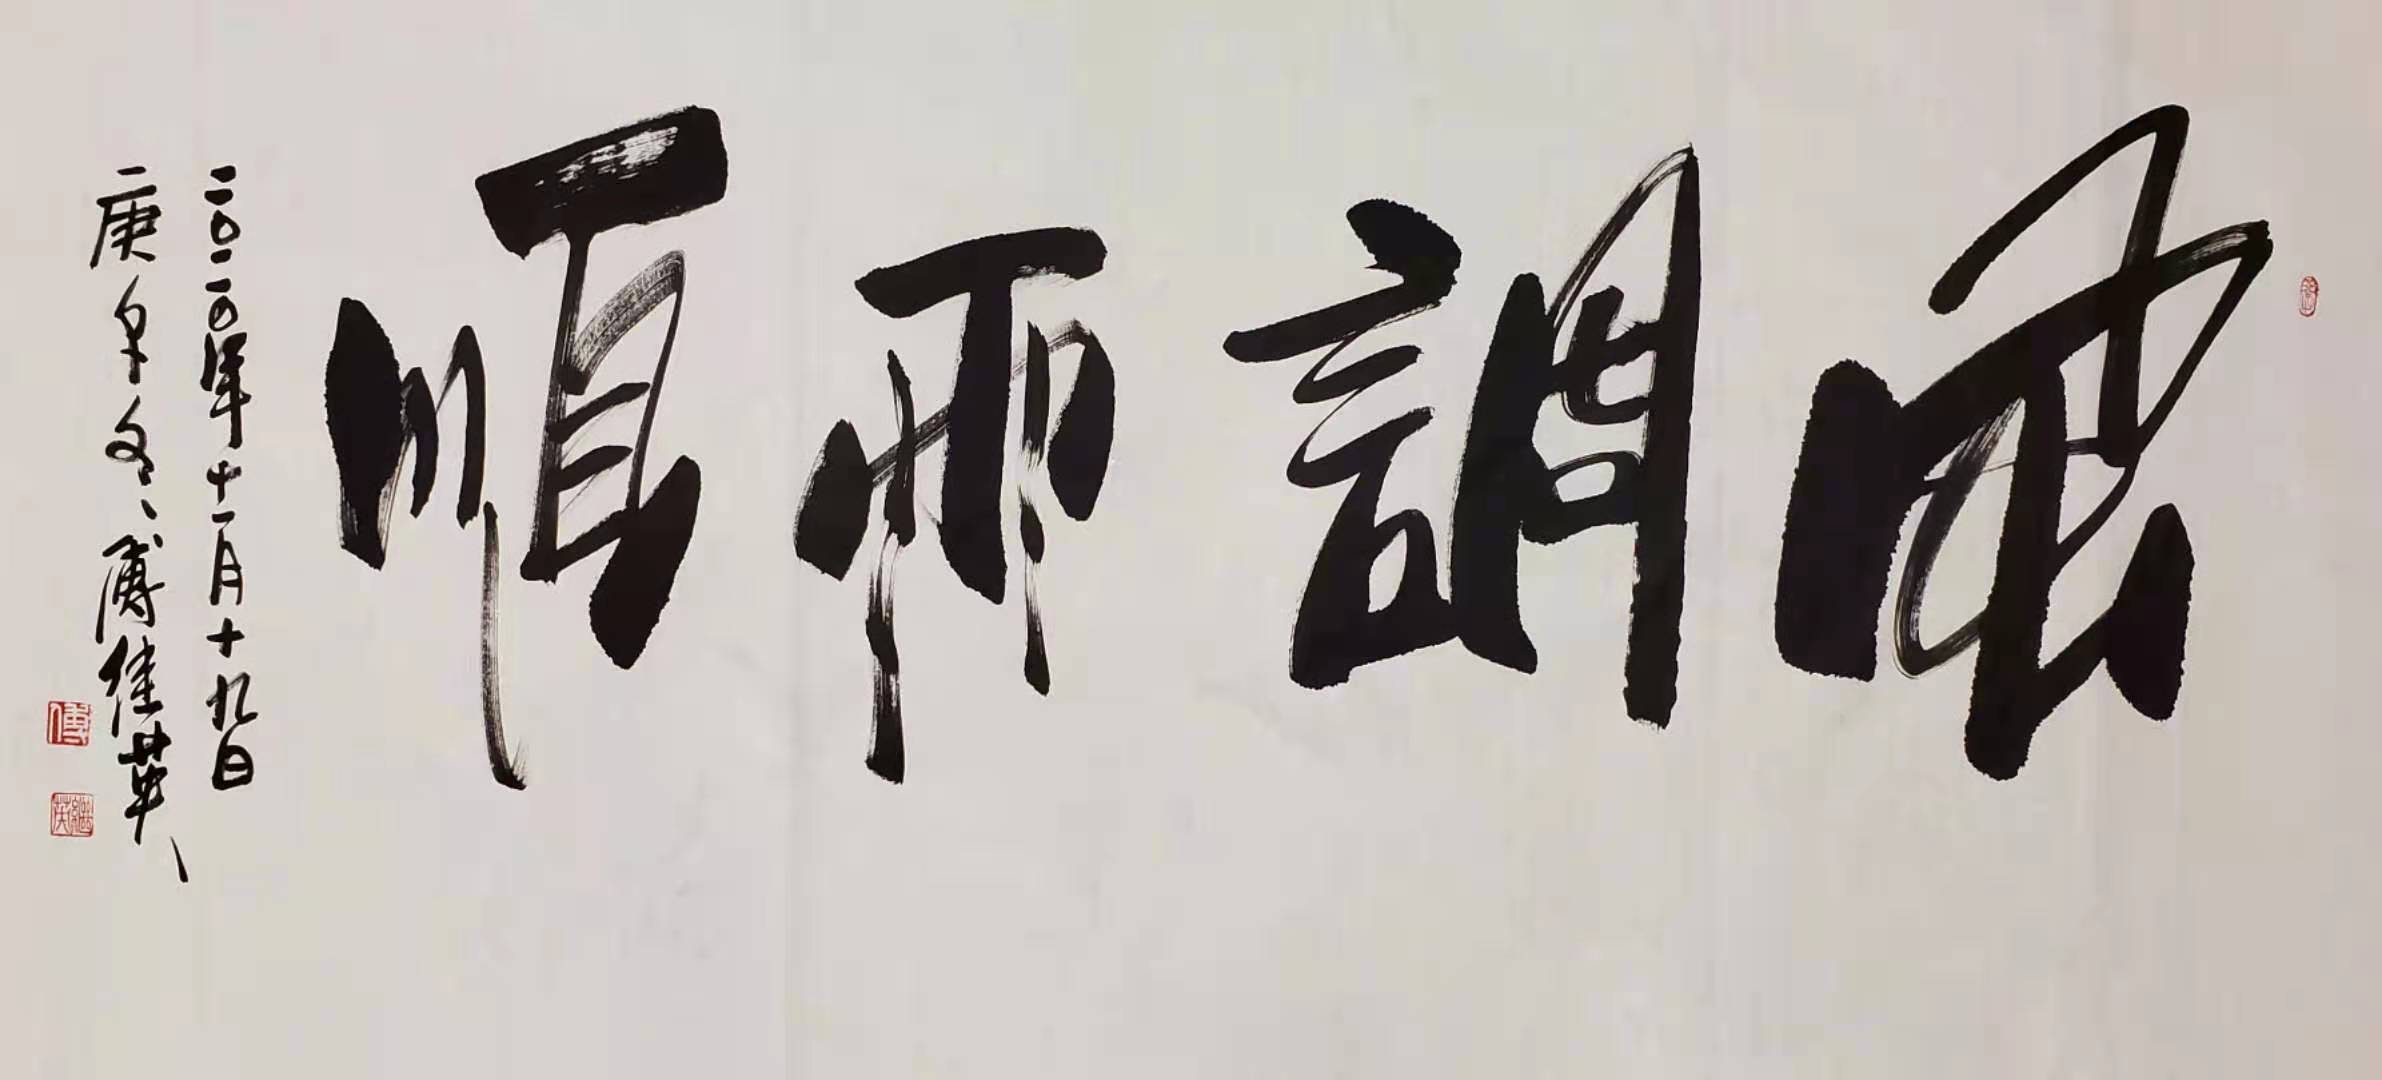 風調雨順
二〇二〇年十一月十九日
庚子冬傅继英
傅
繼英